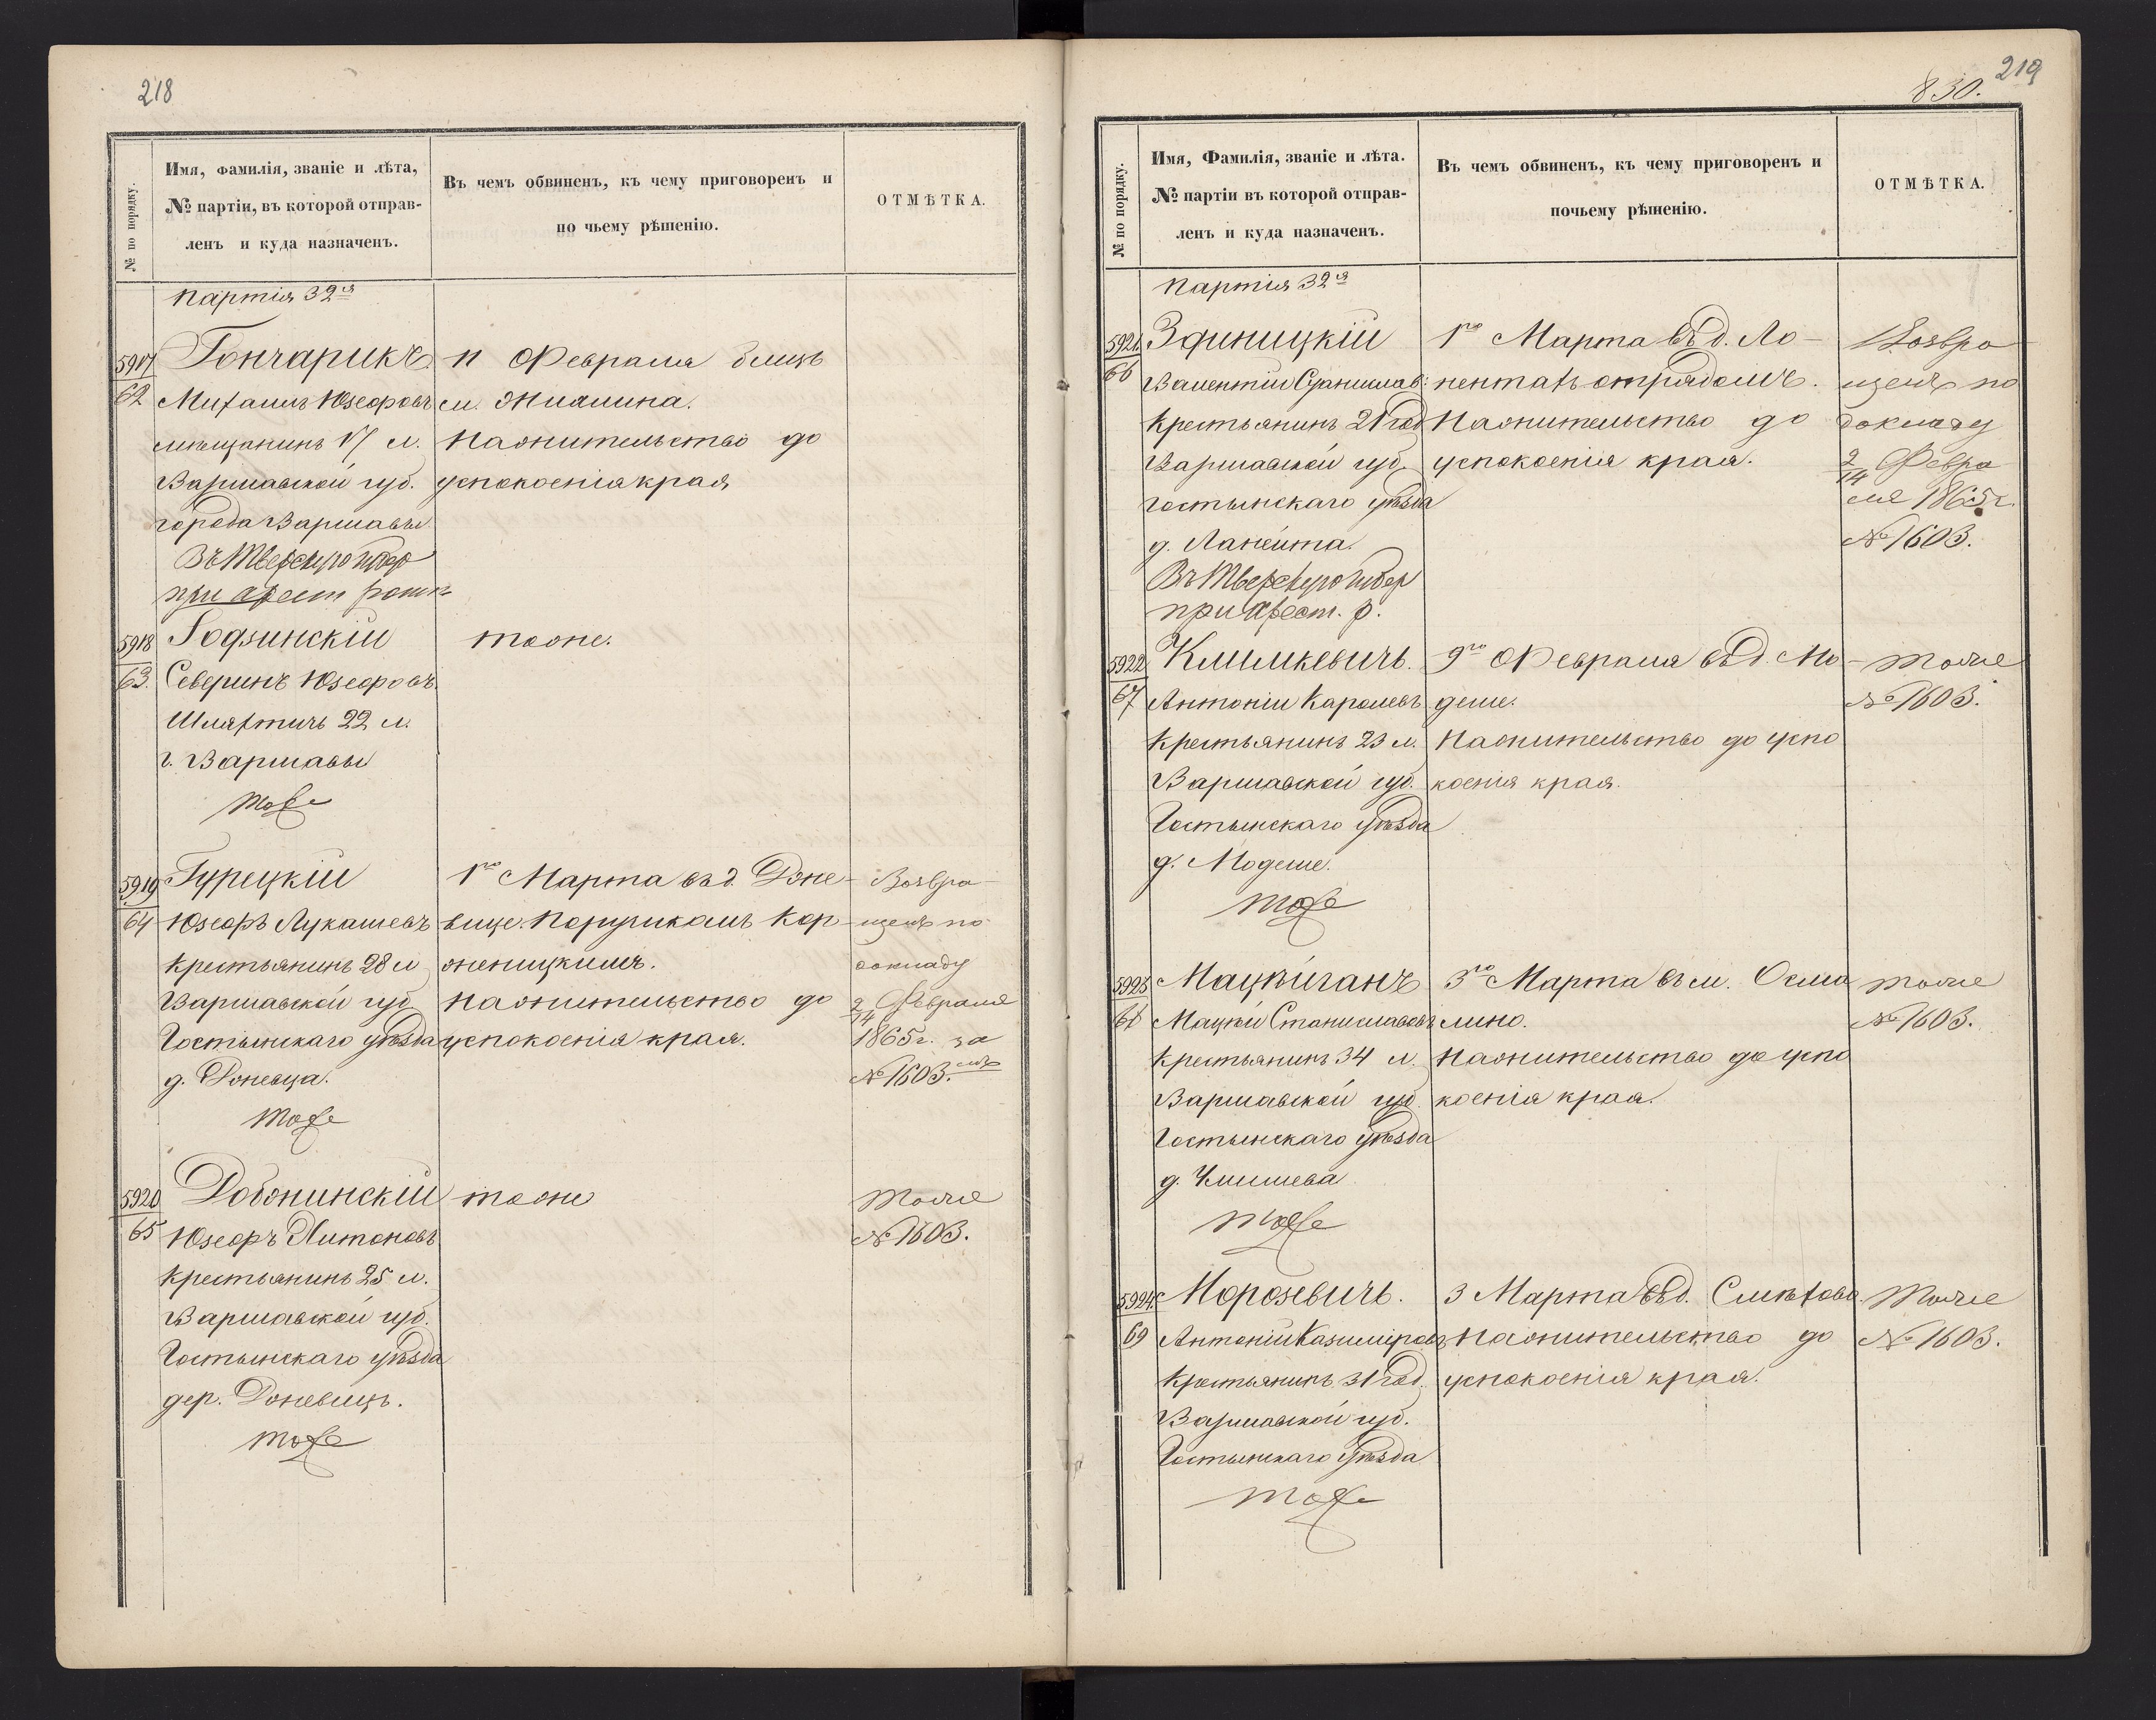 218
№ по порядку.
Имя, фамилія, званіе и лѣта,
№ партіи, въ которой отправ-
ленъ и куда назначенъ.
Въ чемъ обвиненъ, къ чему приговоренъ и
по чьему рѣшенію.
ОТМѢТКА.
Партія 32я
5917
62
Гончарикъ
Михаилъ Юзефовъ
мѣщанинъ 17 л.
Варшавской губ.
города Варшавы
Въ Тверскую губер
при арест ротѣ
11 Февраля близъ
м.
На жительство до
успокоенія края
5918
63.
Годзинскій
Северинъ Юзефовъ.
Шляхтичъ 22 л.
г. Варшавы
тоже
тоже.
5919
64
Гурецкій
Юзефъ Лукашевъ
крестьянинъ 28 л
Варшавской губ
Гостынскаго уѣзда
д. Доневца.
тоже
1го Марта въ д. Доне-
вице. Поручикомъ Кор-
женицкимъ.
На жительство до
успокоенія края.
Возвра-
щенъ по
докладу
2/14 Февраля
1865г. за
№ 1603.
5920
65
Добжинскій
Юзефъ Антоновъ
крестьянинъ 25 л.
Варшавской губ.
Гостынскаго уѣзда
дер. Доневицъ.
тоже
тоже
тоже
№ 1603.
219
830.
№ по порядку.
Имя, Фамилія, званіе и лѣта.
№ партіи въ которой отправ-
ленъ и куда назначенъ.
Въ чемъ обвиненъ, къ чему приговоренъ и
почьему рѣшенію.
ОТМѢТКА.
Партія 32я
5921
66
Здуницкій
Валентій Станислав:
крестьянинъ 21 год
Варшавской губ.
Гостынскаго уѣзда
д. Ланента.
Въ Тверскую губер
при арест. р.
1го Марта въ д. Ло-
нентахъ отрядомъ.
На жительство до
успокоенія края.
Возвра-
щенъ по
докладу
2/14 Февра
ля 1865г.
№ 1603.
5922
67
Климкевичъ.
Антоній Каролевъ
крестьянинъ 23 л.
Варшавской губ.
Гостынскаго уѣзда
д. Модеше.
тоже
9го Февраля въ д. Мо-
деше.
На жительство до успо
коенія края.
тоже
№ 1603.
5923
68
Мацѣйчанъ
Мацѣй Станиславовъ
крестьянинъ 34 л.
Варшавской губ.
Гостынскаго уѣзда
д.
тоже
3го Марта въ м. Осмо
лино.
На жительство до успо
коенія края.
тоже
№ 1603.
5924
69
Морозевичъ.
Антоній Казиміровъ
крестьянинъ 31 год.
Варшавской губ.
Гостынскаго уѣзда
тоже
3 Марта въ д.
На жительство до
успокоенія края.
тоже
№ 1603.